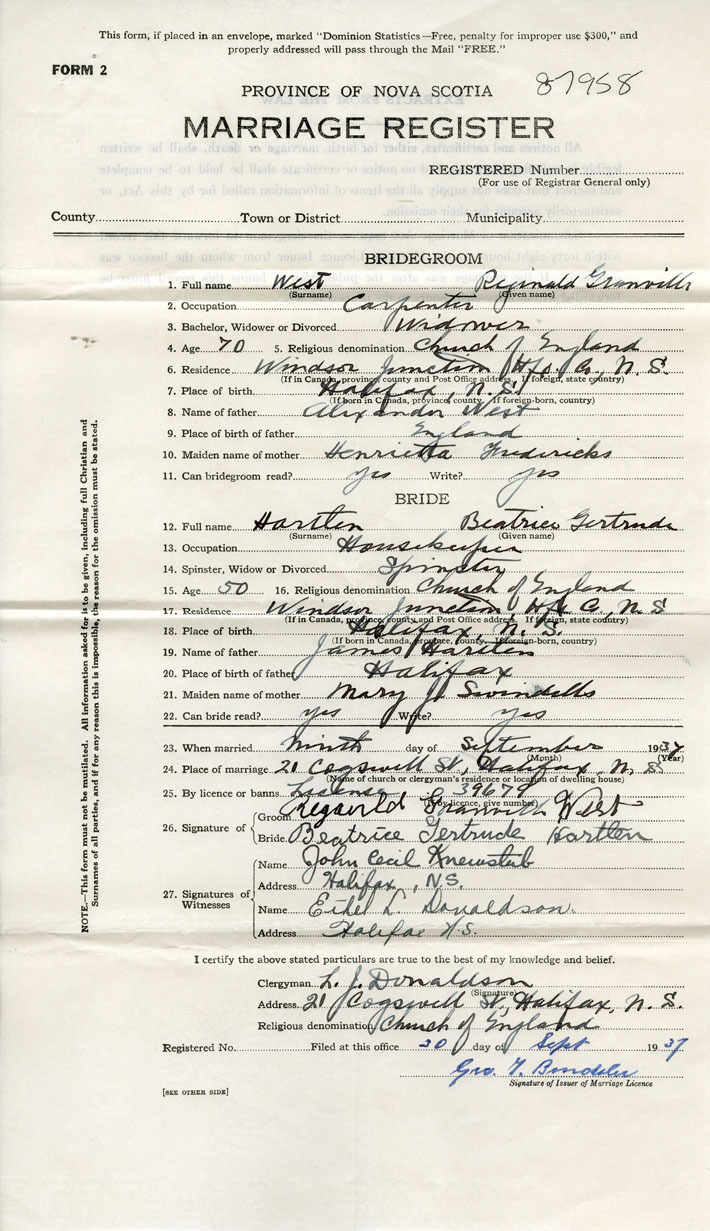 This form, if placed in an envelope, marked "Dominion Statistics—Free, penalty for improper use $300," and
properly addressed will pass through the Mail "FREE."
FORM 2
PROVINCE OF NOVA SCOTIA 87958
MARRIAGE REGISTER
REGISTERED Number
(For use of Registrar General only)
County Town or District Municipality
BRIDEGROOM
1. Full name West Reginald Granville
(Surname) (Given name)
2. Occupation Carpenter
3. Bachelor, Widower or Divorced Widower
4. Age 70 5. Religious denomination Church of England
6. Residence Windsor Junction Hfx. Co., N. S.
(If in Canada, province, county and Post Office address. If foreign, state country)
7. Place of birth Halifax, N. S.
(If born in Canada, province, county. If foreign-born, country)
8. Name of father Alexander West
9. Place of birth of father England
10. Maiden name of mother Henrietta Fredericks
11. Can bridegroom read? yes Write? yes
BRIDE
12. Full name Hartlen Beatrice Gertrude
(Surname) (Given name)
13. Occupation Housekeeper
14. Spinster, Widow or Divorced Spinster
15. Age 50 16. Religious denomination Church of England
17. Residence Windsor Junction Hfx Co., N. S
(If in Canada, province, county and Post Office address. If foreign, state country)
18. Place of birth Halifax, N. S.
(If born in Canada, province, county. If foreign-born, country)
19. Name of father James Hartlen
20. Place of birth of father Halifax
21. Maiden name of mother Mary J. Swindells
22. Can bride read? yes Write? yes
23. When married ninth day of September 1937
(Month) (Year)
24. Place of marriage 21 Cogswell St., Halifax, N. S
(Name of church or clergyman's residence or location of dwelling house)
25. By licence or banns License 39679
(By licence, give number)
26. Signature of Groom Regauld Granville West
Bride Beatrice Gertrude Hartlen
27. Signatures of Witnesses
Name John Cecil Knewstub
Address Halifax, N.S.
Name Ethel L. Donaldson.
Address Halifax N.S.
I certify the above stated particulars are true to the best of my knowledge and belief.
Clergyman L. J. Donaldson
(Signature)
Address 21 Cogswell St., Halifax, N. S.
Religious denomination Church of England
Registered No. Filed at this office 30 day of Sept 1937
Geo. F.
Signature of Issuer of Marriage Licence
[SEE OTHER SIDE]
NOTE.—This form must not be mutilated. All information asked for is to be given, including full Christian and
Surnames of all parties, and if for any reason this is impossible, the reason for the omission must be stated.